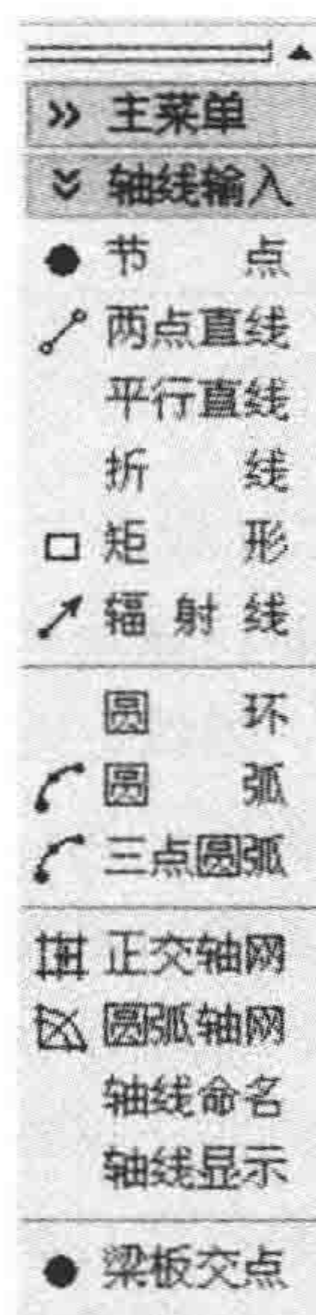 主菜单
轴线输入
节 点
两点直线
平行直线
折 线
矩 形
辐 射 线
圆 环
圆 弧
三点圆弧
正交轴网
圆弧轴网
轴线命名
轴线显示
梁板交点